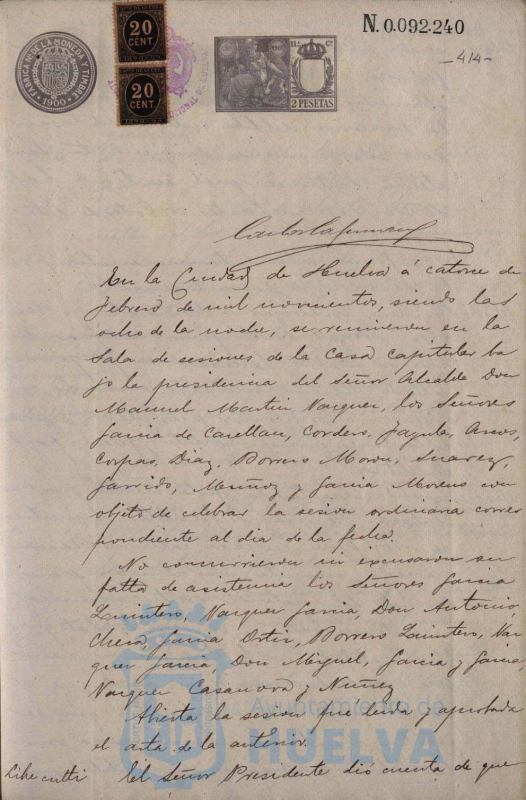 N. 0.092.240
-414-
FABRICA N. DE LA MONEDA Y TIMBRE
1900
20
CENT.
20
CENT.
11.ª C.ª
2 PESETAS
En la Ciudad de Huelva á catorce de
Febrero de mil novecientos, siendo las
ocho de la noche, se reunieron en la
Sala de sesiones de la Casa capitular ba
jo la presidencia del Señor Alcalde Don
Manuel Martin Vazquez, los Señores
Garcia de Castellan, Cordero, Jagula, Arcos,
Corpas, Diaz, Borrero Mora, Suarez,
Garrido, Muñoz y Garcia Moreno con
objeto de celebrar la sesion ordinaria corres
pondiente al dia de la fecha.
No concurrieron ni excusaron su
falta de asistencia los Señores Garcia
Quintero, Vazquez Garcia, Don Antonio,
Checa, Garcia Ortiz, Borrero Quintero, Vaz
quez Garcia, Don Miguel, Garcia y Garcia,
Vazquez Casanova y Nuñez
Abierta la sesion fue leida y aprobada
el acta de la anterior.
El Señor Presidente dió cuenta de que
Ayuntamiento de
HUELVA